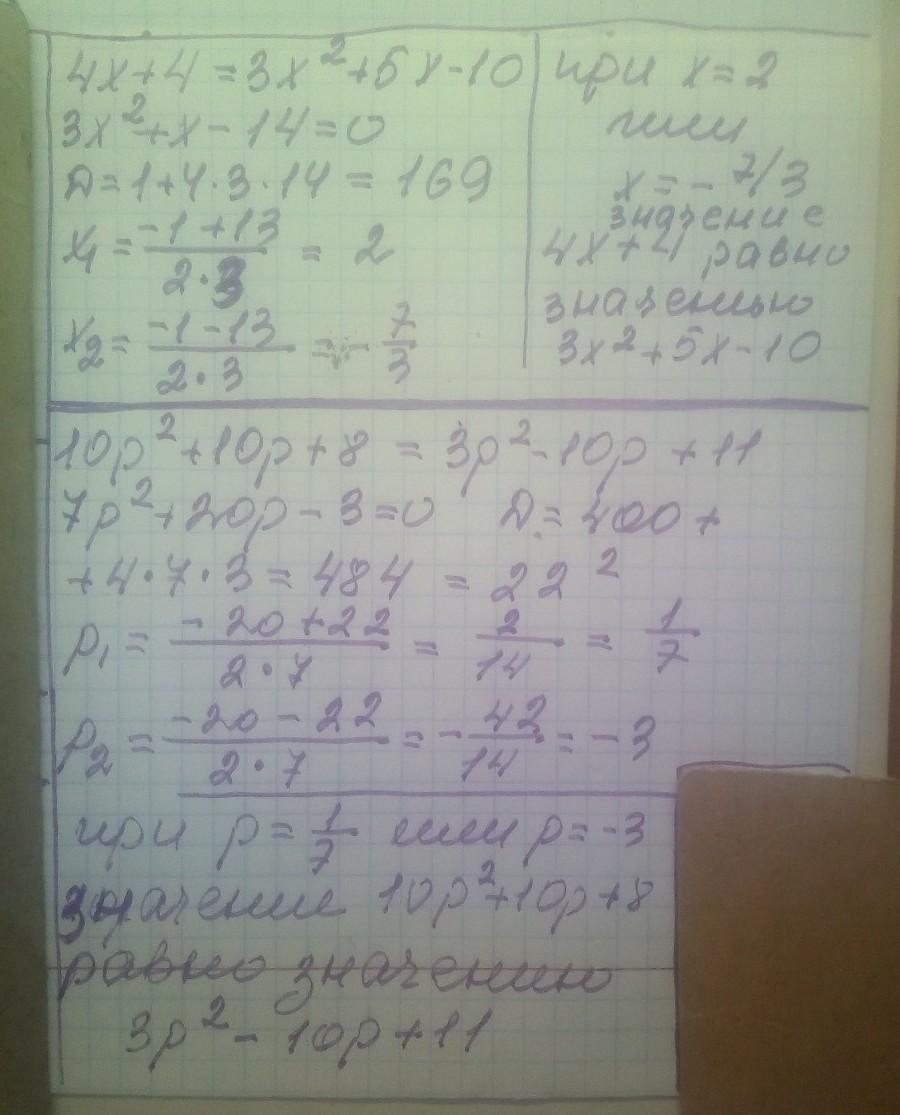 4x+4 = 3x²+5x-10
3x²+x-14=0
D=1+4·3·14 = 169
x₁ = (-1+13)/(2·3) = 2
x₂ = (-1-13)/(2·3) = -7/3
при x=2
или
x=-7/3
значение
4x+4 равно
значению
3x²+5x-10
10p²+10p+8 = 3p²-10p+11
7p²+20p-3=0 D=400+
+4·7·3=484 = 22²
p₁ = (-20+22)/(2·7) = 2/14 = 1/7
p₂ = (-20-22)/(2·7) = -42/14 = -3
при p=1/7 или p=-3
значение 10p²+10p+8
равно значению
3p²-10p+11